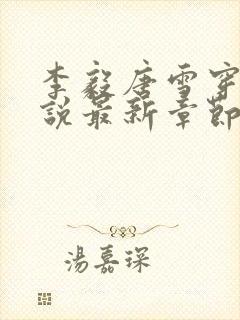 李毅唐雪穿
說最新章節
湯嘉琛